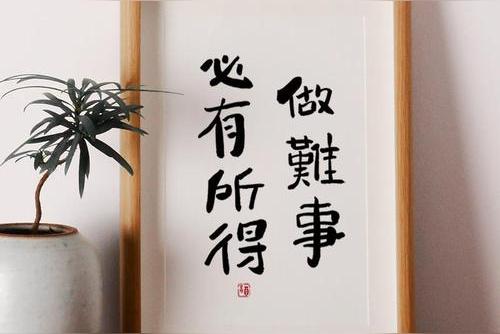 做難事
必有所得